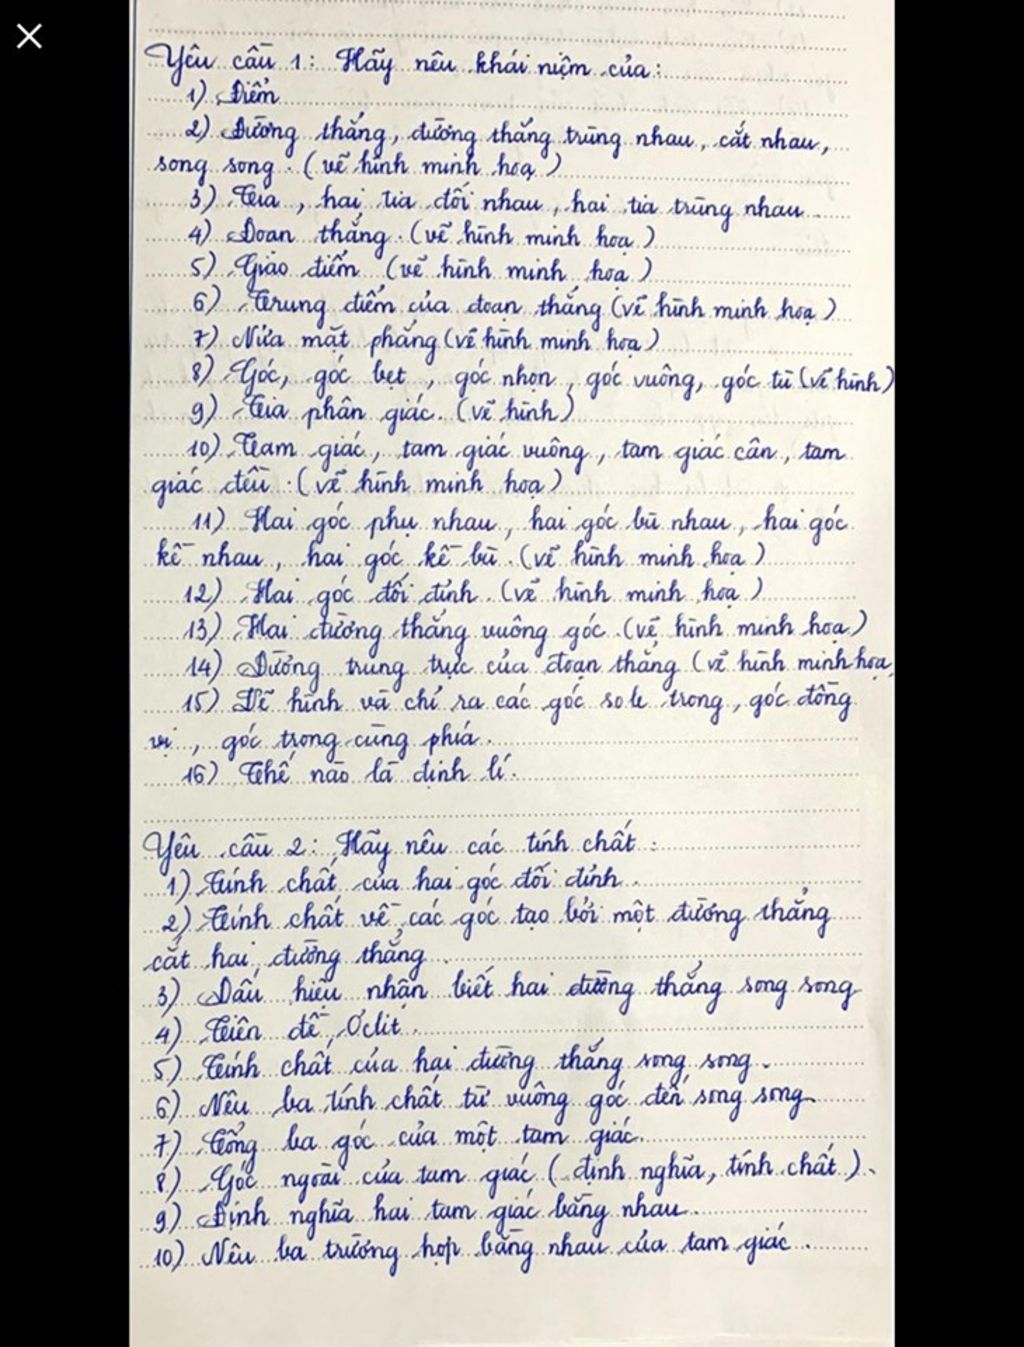 Yêu cầu 1: Hãy nêu khái niệm của:
1) Điểm
2) Đường thẳng, đường thẳng trùng nhau, cắt nhau,
song song. (vẽ hình minh hoạ)
3) Tia, hai tia đối nhau, hai tia trùng nhau.
4) Đoạn thẳng. (vẽ hình minh hoạ)
5) Giao điểm (vẽ hình minh hoạ)
6) Trung điểm của đoạn thẳng (vẽ hình minh hoạ)
7) Nửa mặt phẳng (vẽ hình minh hoạ)
8) Góc, góc bẹt, góc nhọn, góc vuông, góc tù (vẽ hình)
9) Tia phân giác. (vẽ hình)
10) Tam giác, tam giác vuông, tam giác cân, tam
giác đều. (vẽ hình minh hoạ)
11) Hai góc phụ nhau, hai góc bù nhau, hai góc
kề nhau, hai góc kề bù. (vẽ hình minh hoạ)
12) Hai góc đối đỉnh. (vẽ hình minh hoạ)
13) Hai đường thẳng vuông góc. (vẽ hình minh hoạ)
14) Đường trung trực của đoạn thẳng (vẽ hình minh hoạ
15) Vẽ hình và chỉ ra các góc so le trong, góc đồng
vị, góc trong cùng phía.
16) Thế nào là định lí.
Yêu cầu 2: Hãy nêu các tính chất:
1) Tính chất của hai góc đối đỉnh.
2) Tính chất về các góc tạo bởi một đường thẳng
cắt hai đường thẳng.
3) Dấu hiệu nhận biết hai đường thẳng song song
4) Tiên đề Ơclit.
5) Tính chất của hai đường thẳng song song.
6) Nêu ba tính chất từ vuông góc đến song song.
7) Tổng ba góc của một tam giác.
8) Góc ngoài của tam giác (định nghĩa, tính chất).
9) Định nghĩa hai tam giác bằng nhau.
10) Nêu ba trường hợp bằng nhau của tam giác.